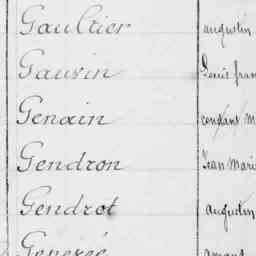 Gaultier augustin
Gauvin Louis fran
Genain constant m
Gendron Jean Marie
Gendrot augustin